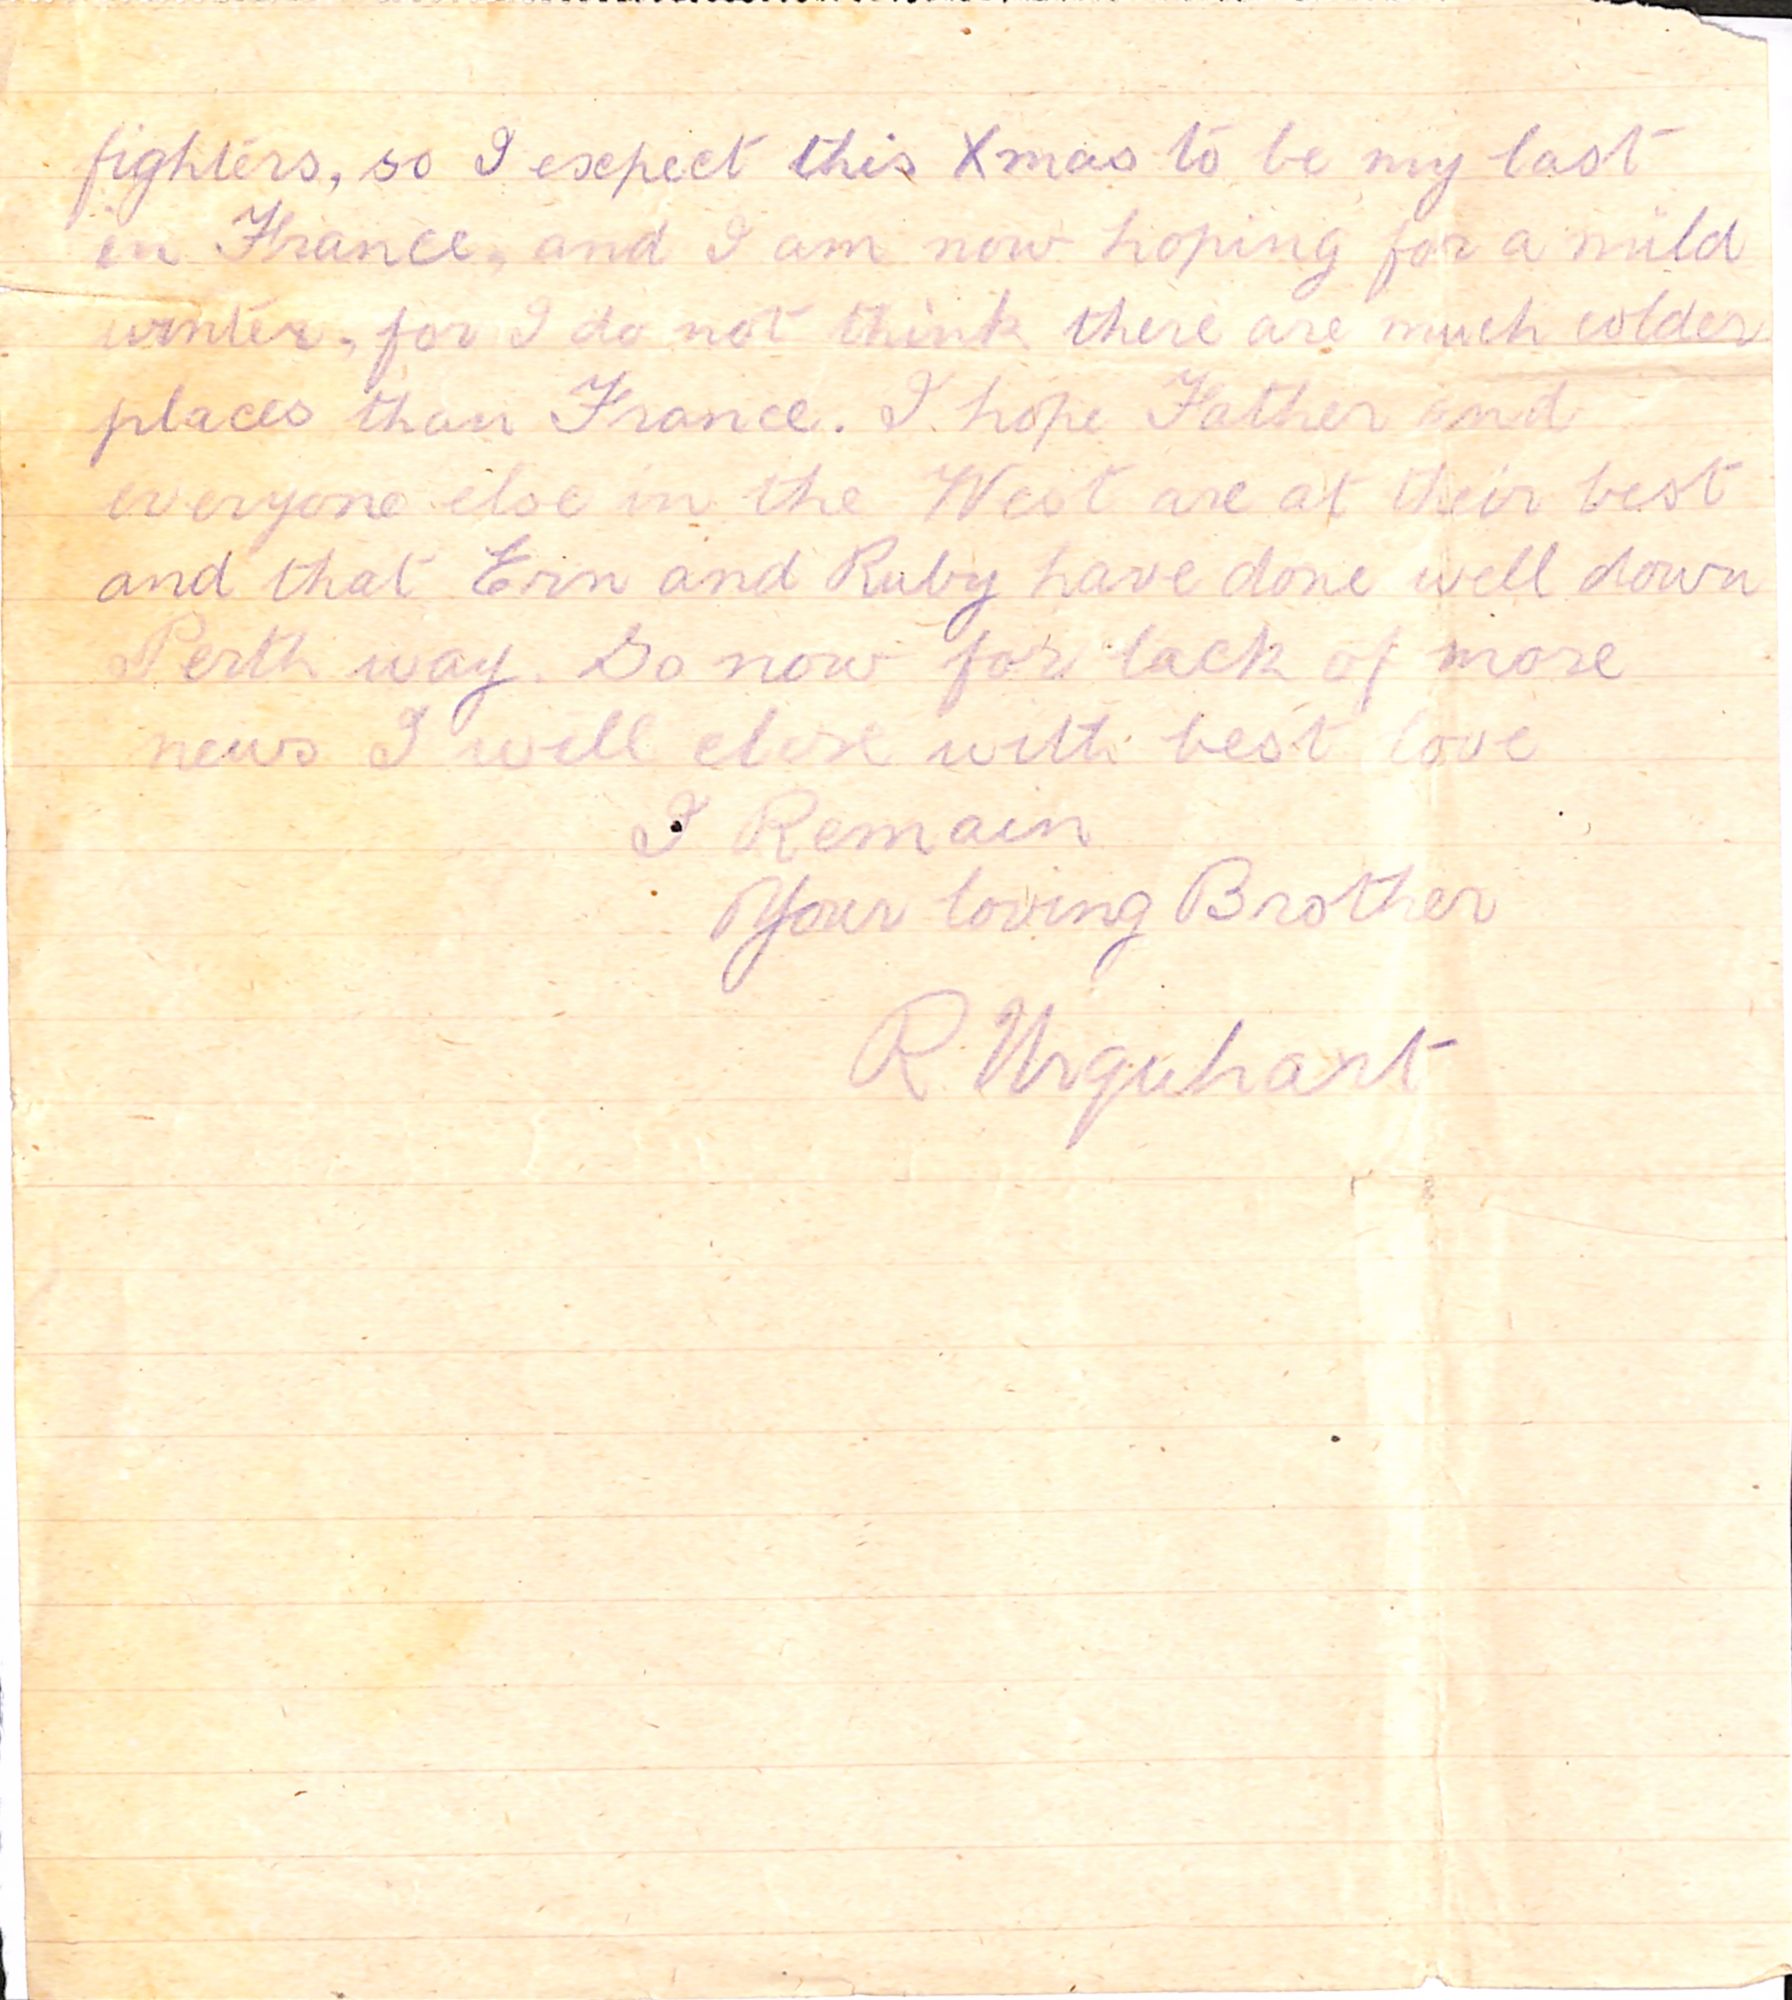 fighters, so I expect this Xmas to be my last
in France, and I am now hoping for a mild
winter, for I do not think there are much colder
places than France. I hope Father and
everyone else in the West are at their best
and that Ern and Ruby have done well down
Perth way. So now for lack of more
news I will close with best love
I Remain
Your loving Brother
R Urquhart